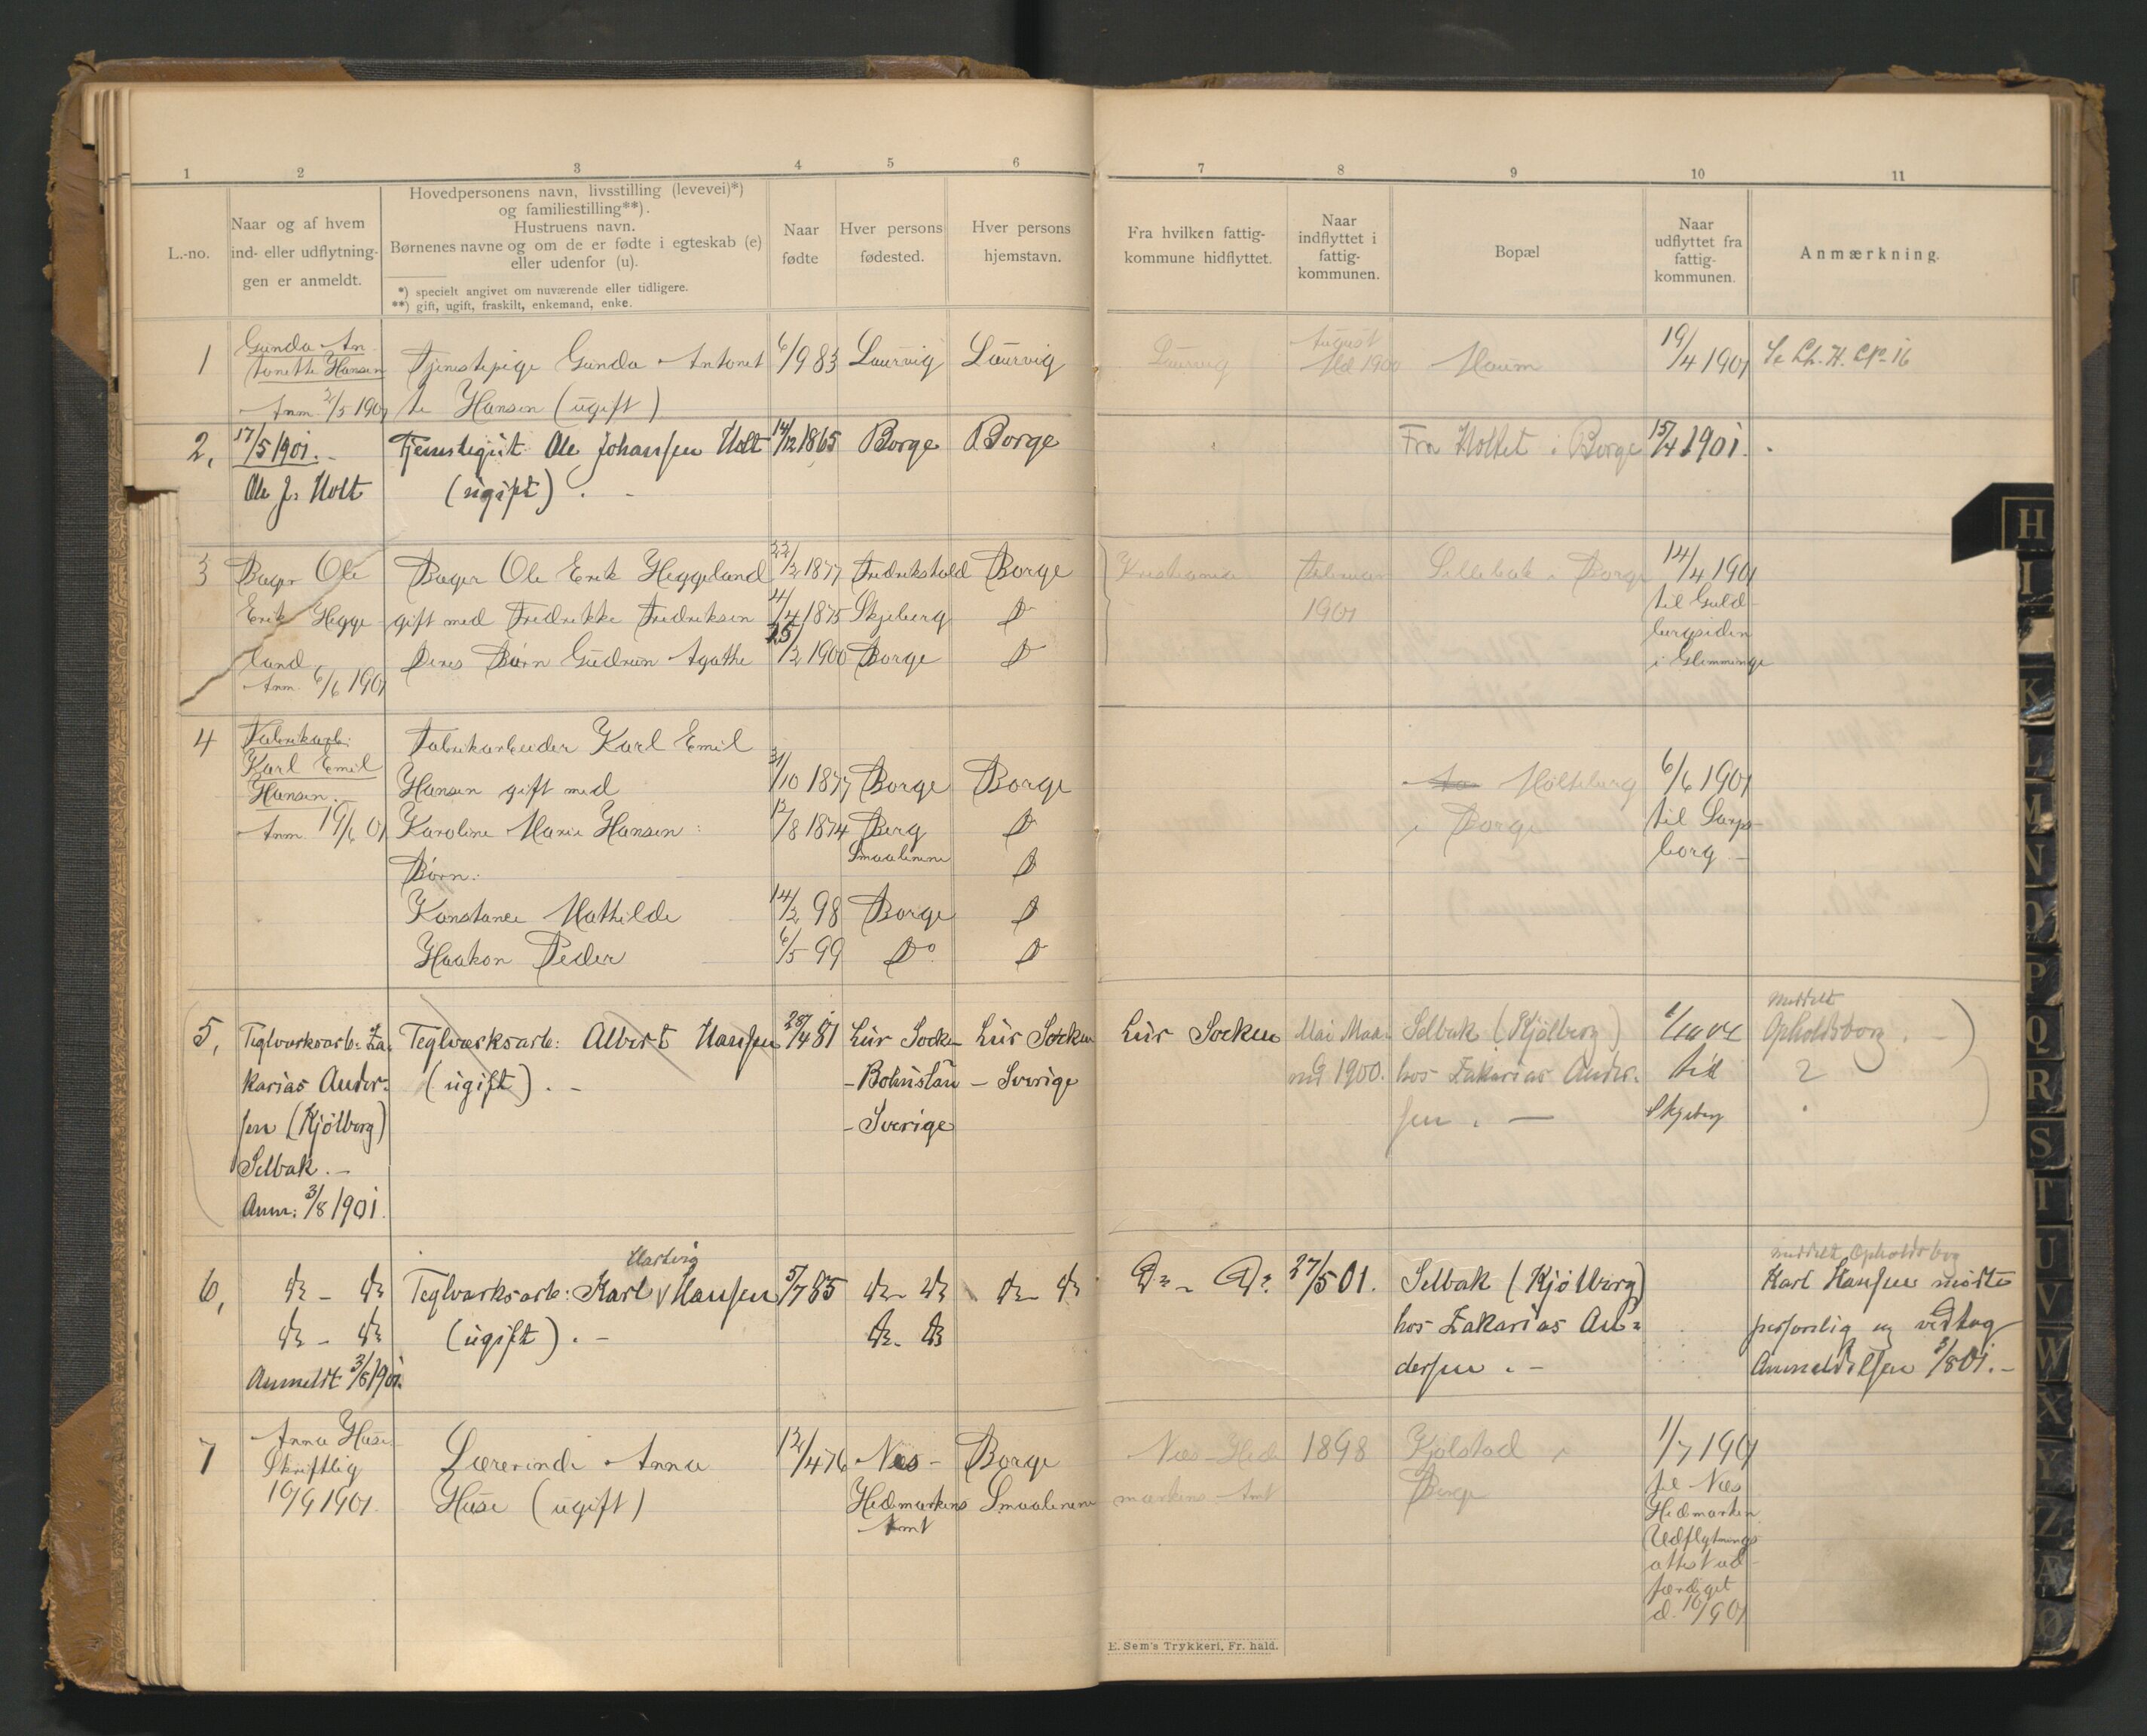 1 2 3 4 5 6 7 8 9 10 11
L.-no.
Naar og af hvem
ind- eller udflytnin-
gen er anmeldt.
Hovedpersonens navn, livsstilling (levevei)*)
og familiestilling**).
Hustruens navn.
Børnenes navne og om de er fødte i egteskab (e)
eller udenfor (u).
*) specielt angivet om nuværende eller tidligere.
**) gift, ugift, fraskilt, enkemand, enke.
Naar
fødte
Hver persons
fødested.
Hver persons
hjemstavn.
Fra hvilken fattig-
kommune hidflyttet.
Naar
indflyttet i
fattig-
kommunen.
Bopæl
Naar
udflyttet fra
fattig-
kommunen.
Anmærkning.
1
Gunda An
tonette Hansen
Anm. 2/5 1901
Tjenestepige Gunda Antonet
te Hansen (ugift)
6/9 83
Laurvig
Laurvig
Laurvig
August
Md 1900
Haum
19/4 1901
Se Ch. H. CP. 16
2,
17/5 1901.
Ole J. Holt
Tjenstegut Ole Johansen Holt
(ugift).
14/12 1865
Borge
Borge
Fra Holtet i Borge
15/4 1901.
3
Bager Ole
Erik Hegge
land
Anm. 6/6 1901
Bager Ole Erik Heggeland
gift med Fredrikke Fredriksen
Deres Børn Gudrun Agathe
22/2 1877
4/4 1875
25/2 1900
Fredrikshald
Skjeberg
Borge
Borge
Do
Do
Kristiania
Februar
1901
Sellebak i Borge
14/4 1901
til Guld-
bergsiden
i Glemminge
4
Fabrikarb.
Karl Emil
Hansen.
Anm. 19/6 01
Fabrikarbeider Karl Emil
Hansen gift med
Karoline Marie Hansen:
Børn:
Konstance Mathilde
Haakon Peder
31/10 1877
13/8 1874
14/2 98
6/5 99
Borge
Berg
Smaalenene
Borge
Do
Borge
Do
Do
Do
Do
Holteberg
i Borge
6/6 1901
til Sarps-
borg
5,
Teglværksarb: Za-
karias Ander-
sen (Kjölberg)
Selbak. –
Anm: 3/8 1901.
Teglværksarb: Albert Hansen
(ugift). –
28/4 81
Lur Socken
- Bohuslän
- Sverige
Lur Socken
- Sverige
Lur Socken
Mai Maa-
ned 1900.
Selbak (Kjölberg)
hos Zakarias Ander-
sen. –
til
Skjeberg
Meddelt
Opholdsbog. –
2
6,
do – do
do – do
Anmeldt 3/8 1901.
Hartvig
Teglværksarb: Karl Hansen
(ugift). –
5/7 85
do – do
do – do
do – do
Do – Do
27/5 01.
Selbak (Kjölberg)
hos Zakarias An-
dersen. –
meddelt Opholdsbog
Karl Hansen mødte
personlig og vedtog
Anmeldelsen 3/8 01. –
7
Anna Huse
Skriftlig
10/9 1901.
Lærerinde Anna
Huse (ugift)
12/4 76
Næs –
Hedemarkens
Amt
Borge
Smaalenene
Næs – Hede
markens Amt
1898
Kjølstad i
Borge
1/7 1901
til Næs
Hedemarken
Udflytnings-
attest ud-
færdiget
d. 10/9 01
E. Sem's Trykkeri, Fr. hald.
H
I
K
L
M
N
O
P
Q
R
S
T
U
V
W
X
Y
Z
Æ
Ø